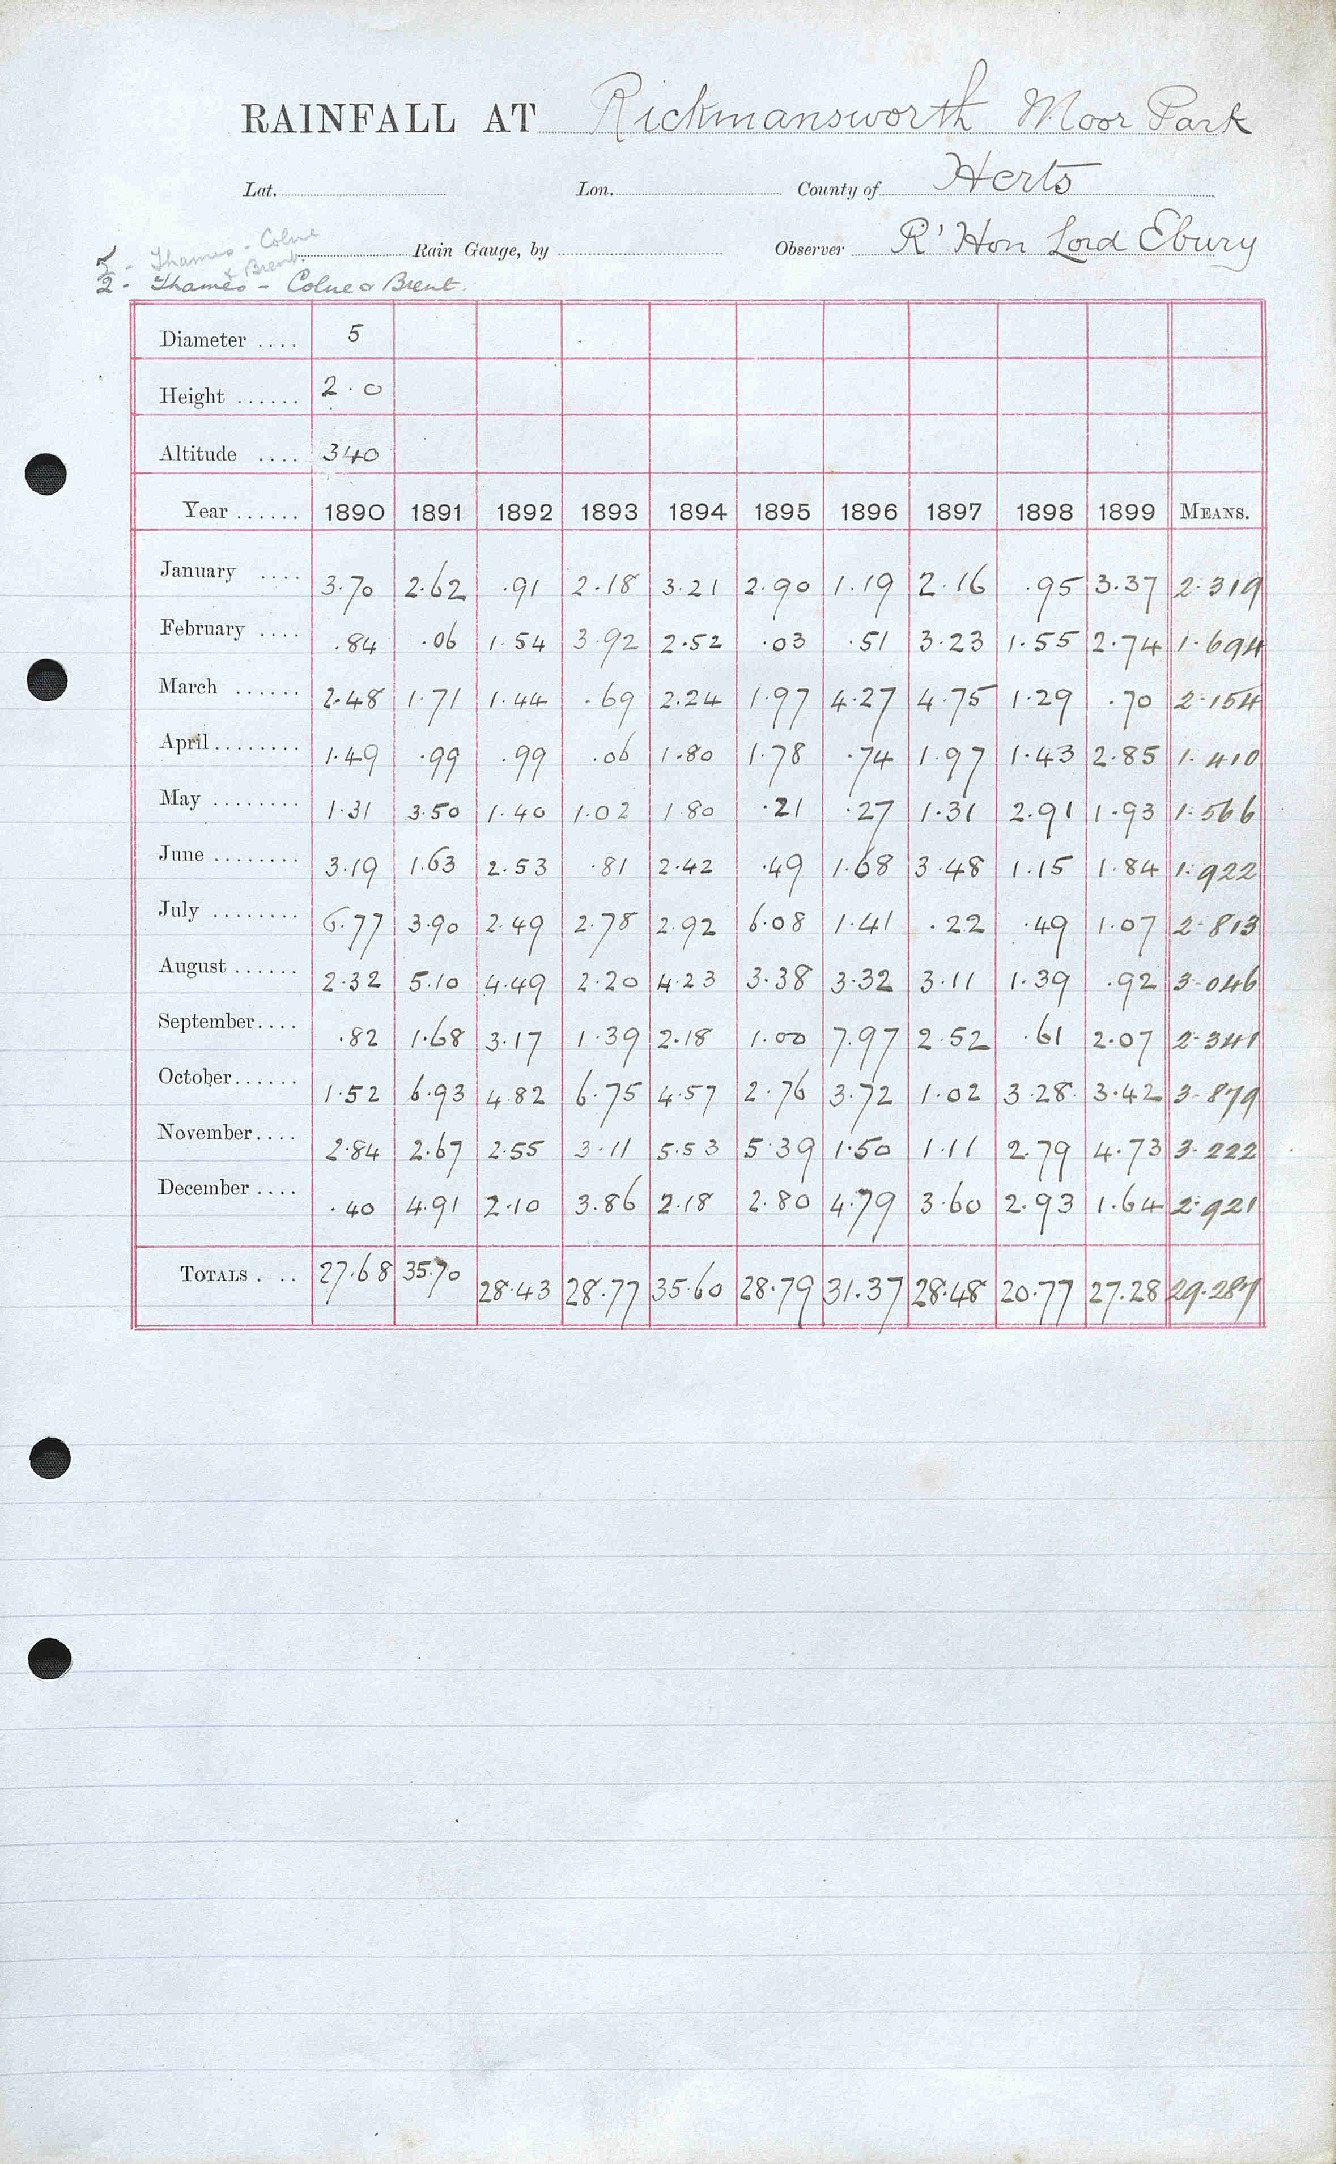 RAINFALL AT Rickmansworth Moor Park
Lat. Lon. County of Herts
2 - Thames - Colne & Brent.
Rain Gauge, by Observer Rt Hon Lord Ebury
2 - Thames - Colne & Brent.
Diameter .... 5
Height ...... 2.0
Altitude .... 340
Year ...... 1890 1891 1892 1893 1894 1895 1896 1897 1898 1899 MEANS.
January .... 3.70 2.62 .91 2.18 3.21 2.90 1.19 2.16 .95 3.37 2.319
February .... .84 .06 1.54 3.92 2.52 .03 .51 3.23 1.55 2.74 1.694
March ...... 2.48 1.71 1.44 .69 2.24 1.97 4.27 4.75 1.29 .70 2.154
April ........ 1.49 .99 .99 .06 1.80 1.78 .74 1.97 1.43 2.85 1.410
May ........ 1.31 3.50 1.40 1.02 1.80 .21 .27 1.31 2.91 1.93 1.566
June ........ 3.19 1.63 2.53 .81 2.42 .49 1.68 3.48 1.15 1.84 1.922
July ........ 6.77 3.90 2.49 2.78 2.92 6.08 1.41 .22 .49 1.07 2.813
August ...... 2.32 5.10 4.49 2.20 4.23 3.38 3.32 3.11 1.39 .92 3.046
September .... .82 1.68 3.17 1.39 2.18 1.00 7.97 2.52 .61 2.07 2.341
October ...... 1.52 6.93 4.82 6.75 4.57 2.76 3.72 1.02 3.28 3.42 3.879
November .... 2.84 2.67 2.55 3.11 5.53 5.39 1.50 1.11 2.79 4.73 3.222
December .... .40 4.91 2.10 3.86 2.18 2.80 4.79 3.60 2.93 1.64 2.921
TOTALS . .. 27.68 35.70 28.43 28.77 35.60 28.79 31.37 28.48 20.77 27.28 29.287